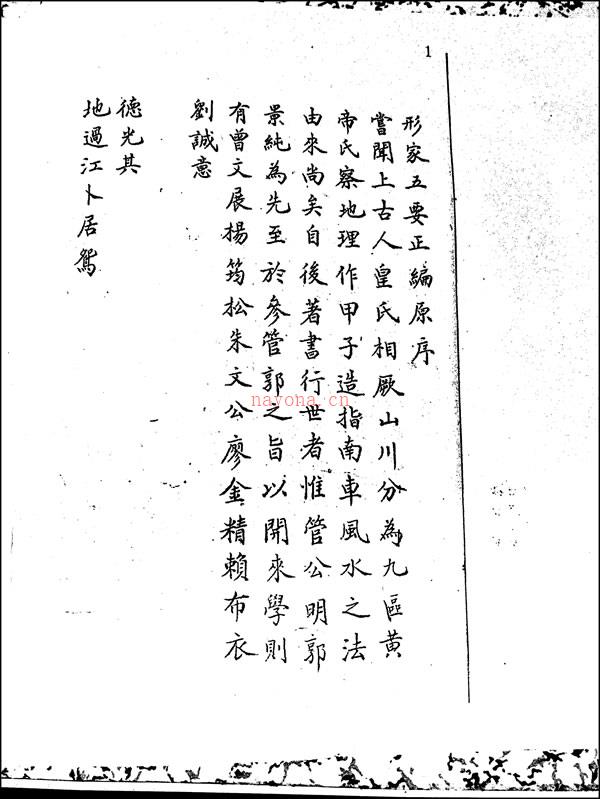 1
形家五要正編原序
嘗聞上古人皇氏相厥山川分為九區黃
帝氏察地理作甲子造指南車風水之法
由來尚矣自後著書行世者惟管公明郭
景純為先至於參管郭之旨以開來學則
有曾文展楊筠松朱文公廖金精賴布衣
劉誠意
德光其
地過江卜居鴛
nayona.cn